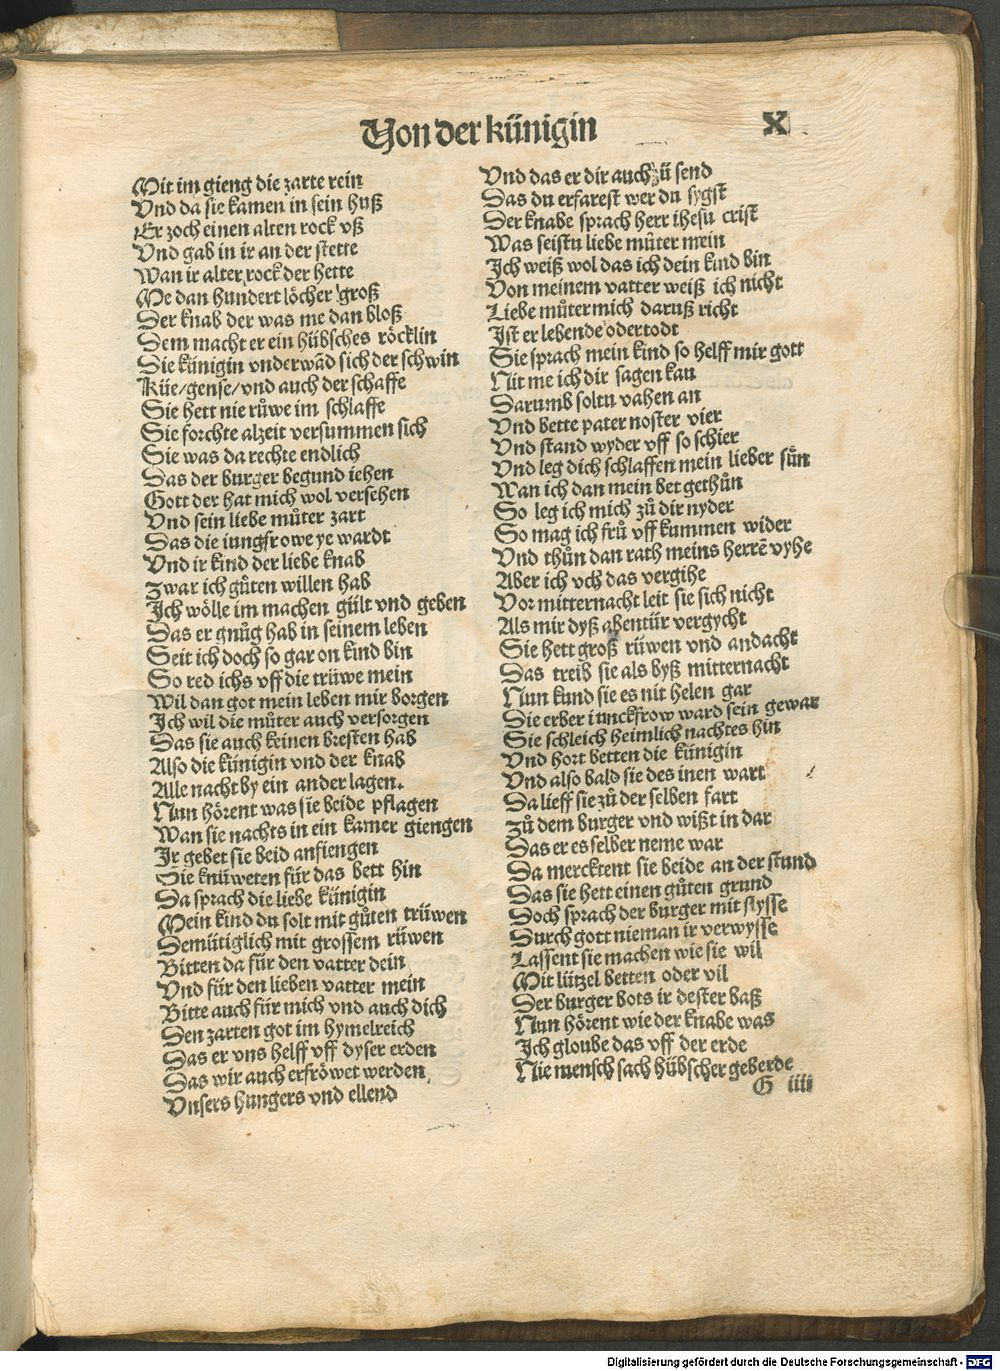 Von der künigin
X
Mit im gieng die zarte rein
Vnd da sie kamen in sein huß
Er zoch einen alten rock vß
Vnd gab in ir an der stette
Wan ir alter rock der hette
Me dan hundert löcher groß
Der knab der was me dan bloß
Dem macht er ein hübsches röcklin
Die künigin vnderwãd sich der schwin
Küe/gense/vnd auch der schaffe
Sie hett nie růwe im schlaffe
Sie forchte alzeit versummen sich
Sie was da rechte endlich
Das der burger begund iehen
Gott der hat mich wol versehen
Vnd sein liebe můter zart
Das die iungfrowe ye wardt
Vnd ir kind der liebe knab
Zwar ich gůten willen hab
Ich wölle im machen gült vnd geben
Das er gnůg hab in seinem leben
Seit ich doch so gar on kind bin
So red ichs vff die trüwe mein
Wil dan got mein leben mir borgen
Ich wil die můter auch versorgen
Das sie auch keinen bresten hab
Also die künigin vnd der knab
Alle nacht by ein ander lagen.
Nun hörent was sie beide pflagen
Wan sie nachts in ein kamer giengen
Ir gebet sie beid anfiengen
Sie knüweten für das bett hin
Da sprach die liebe künigin
Mein kind du solt mit gůten trüwen
Demütiglich mit grossem rüwen
Bitten da für den vatter dein
Vnd für den lieben vatter mein
Bitte auch für mich vnd auch dich
Den zarten got im hymelreich
Das er vns helff vff dyser erden
Das wir auch erfröwet werden
Vnsers hungers vnd ellend
Vnd das er dir auch zů send
Das du erfarest wer du sygst
Der knabe sprach herr ihesu crist
Was seistu liebe můter mein
Ich weiß wol das ich dein kind bin
Von meinem vatter weiß ich nicht
Liebe můter mich daruß richt
Ist er lebende oder todt
Sie sprach mein kind so helff mir gott
Nit me ich dir sagen kan
Darumb soltu vahen an
Vnd bette pater noster vier
Vnd stand wyder vff so schier
Vnd leg dich schlaffen mein lieber sůn
Wan ich dan mein bet gethůn
So leg ich mich zů dir nyder
So mag ich frů vff kummen wider
Vnd thůn dan rath meins herrẽ vyhe
Aber ich vch das vergihe
Vor mitternacht leit sie sich nicht
Als mir dyß abentür vergycht
Sie hett groß rüwen vnd andacht
Das treib sie als byß mitternacht
Nun kund sie es nit helen gar
Die erber iunckfrow ward sein gewar
Sie schleich heimlich nachtes hin
Vnd hort betten die künigin
Vnd also bald sie des inen wart
Da lieff sie zů der selben fart
Zů dem burger vnd wißt in dar
Das er es selber neme war
Da mercktent sie beide an der stund
Das sie hett einen gůten grund
Doch sprach der burger mit flysse
Durch gott nieman ir verwysse
Lassent sie machen wie sie wil
Mit lützel betten oder vil
Der burger bots ir dester baß
Nun hörent wie der knabe was
Ich gloube das vff der erde
Nie mensch sach hübscher geberde
G iiii
Digitalisierung gefördert durch die Deutsche Forschungsgemeinschaft - DFG